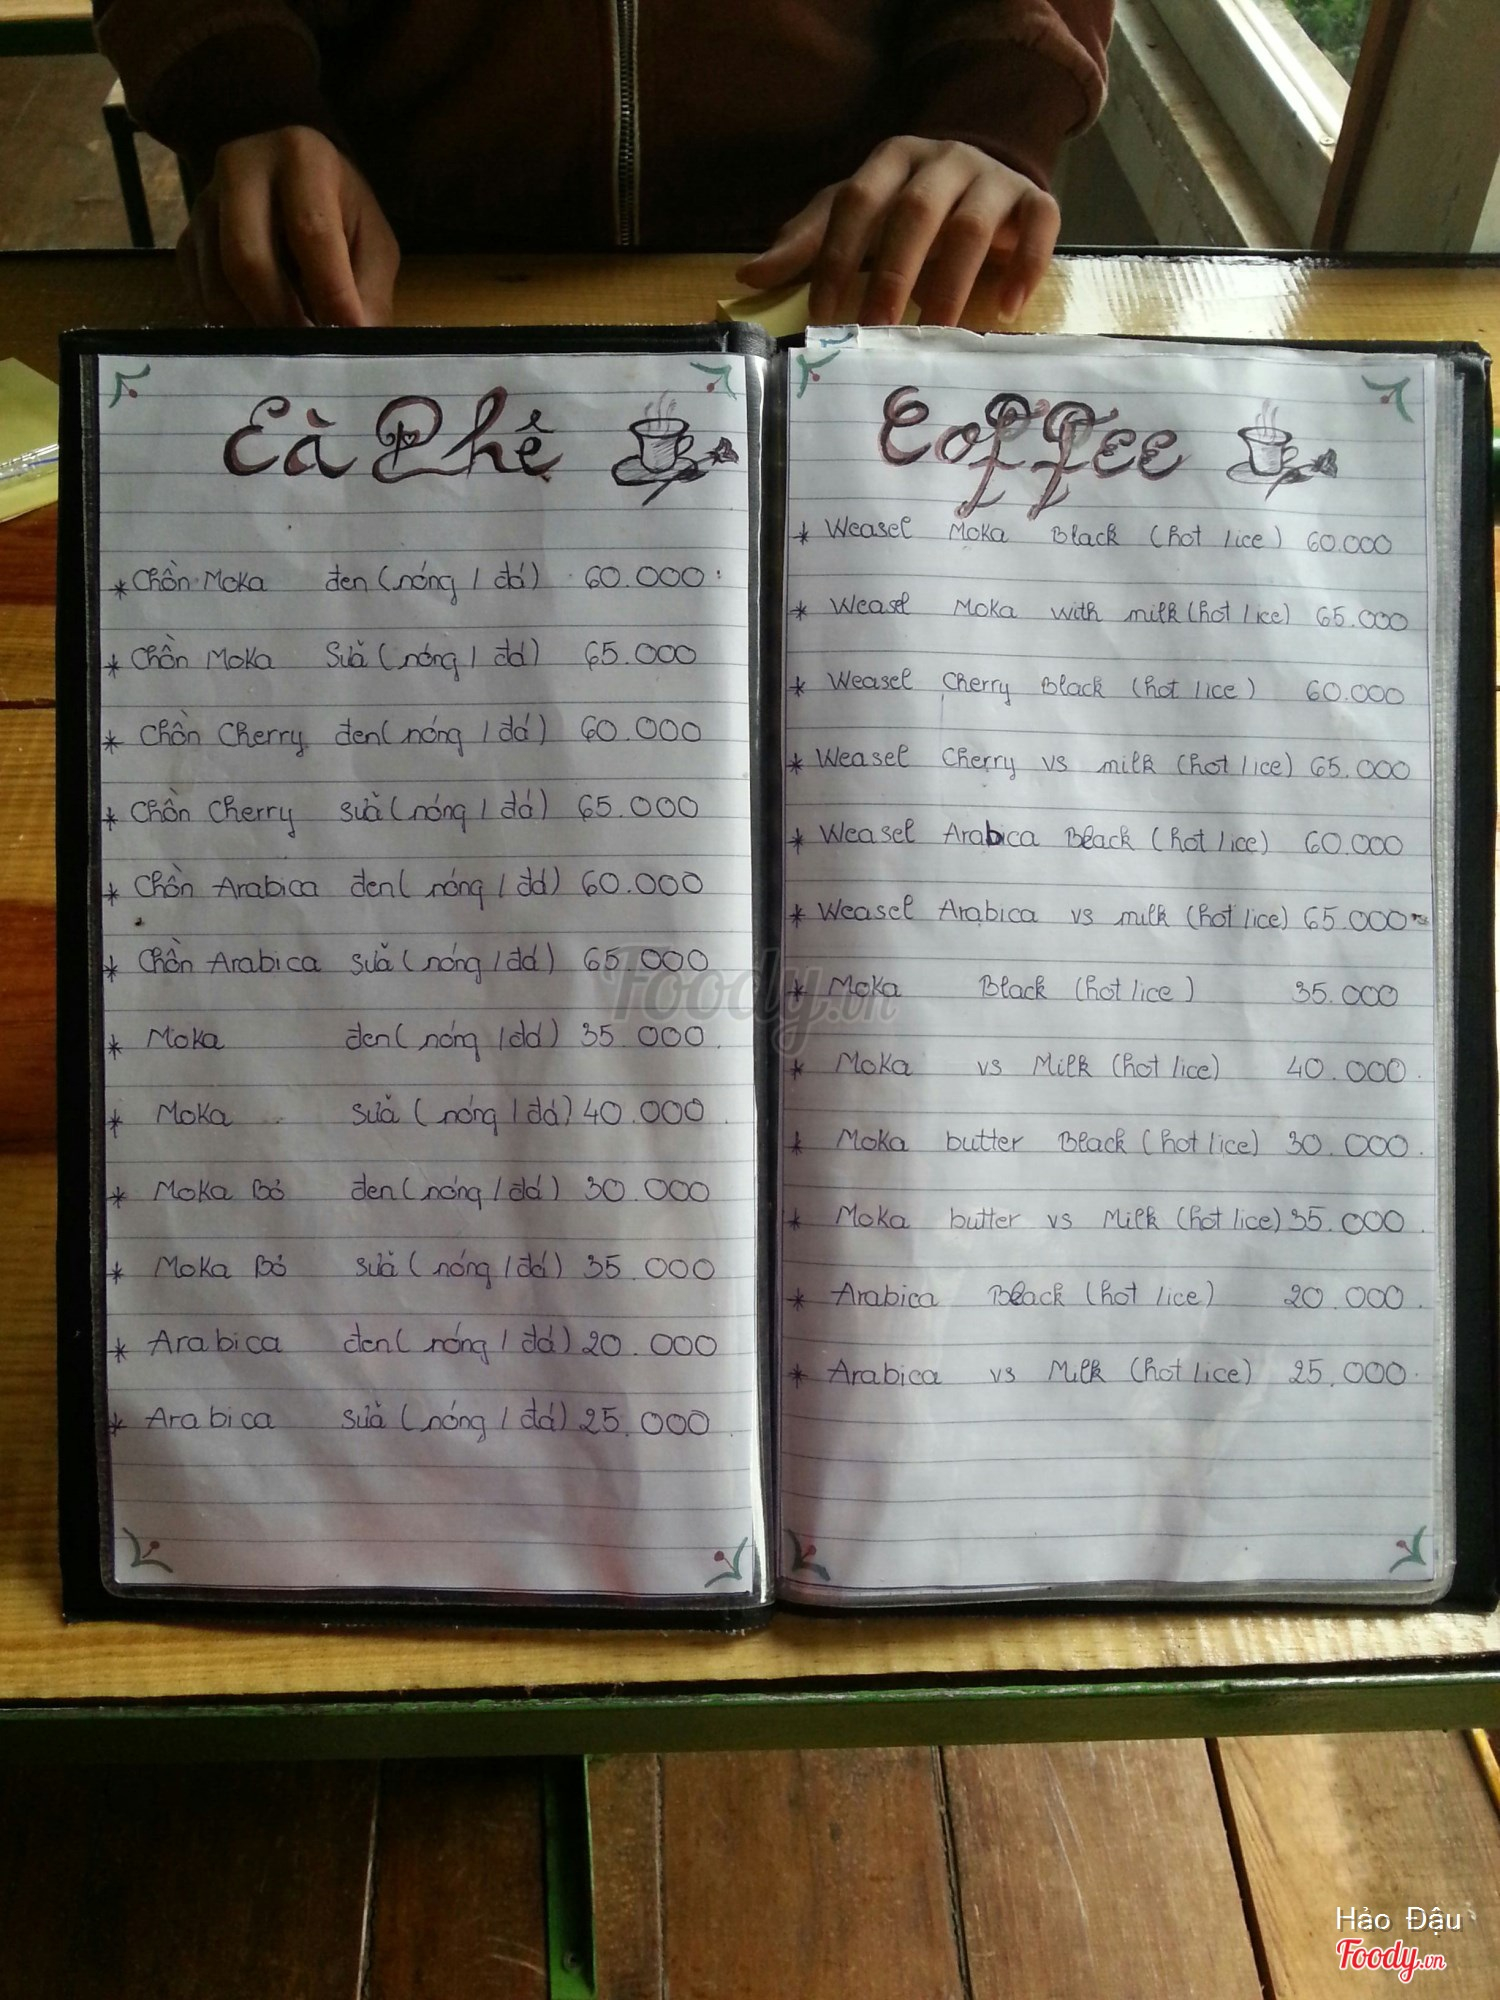 Cà Phê
* Chồn Moka đen (nóng / đá) 60.000
* Chồn Moka Sữa (nóng / đá) 65.000
* Chồn Cherry đen (nóng / đá) 60.000
* Chồn Cherry sữa (nóng / đá) 65.000
* Chồn Arabica đen (nóng / đá) 60.000
* Chồn Arabica sữa (nóng / đá) 65.000
* Moka đen (nóng / đá) 35.000
* Moka sữa (nóng / đá) 40.000
* Moka Bơ đen (nóng / đá) 30.000
* Moka Bơ sữa (nóng / đá) 35.000
* Arabica đen (nóng / đá) 20.000
* Arabica sữa (nóng / đá) 25.000
Coffee
* Weasel Moka Black (hot / ice) 60.000
* Weasel Moka with milk (hot / ice) 65.000
* Weasel Cherry Black (hot / ice) 60.000
* Weasel Cherry vs milk (hot / ice) 65.000
* Weasel Arabica Black (hot / ice) 60.000
* Weasel Arabica vs milk (hot / ice) 65.000
* Moka Black (hot / ice) 35.000
* Moka vs Milk (hot / ice) 40.000
* Moka butter Black (hot / ice) 30.000
* Moka butter vs Milk (hot / ice) 35.000
* Arabica Black (hot / ice) 20.000
* Arabica vs Milk (hot / ice) 25.000
Foody.vn
Hảo Đậu
Foody.vn